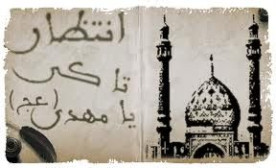 انتظار
تا کی
یا مهدی (عج)